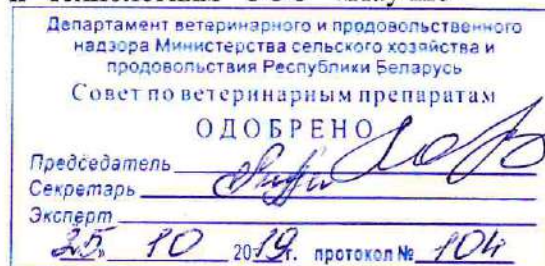 Департамент ветеринарного и продовольственного
надзора Министерства сельского хозяйства и
продовольствия Республики Беларусь
Совет по ветеринарным препаратам
ОДОБРЕНО
Председатель
Секретарь
Эксперт
25. 10 2019г. протокол № 104